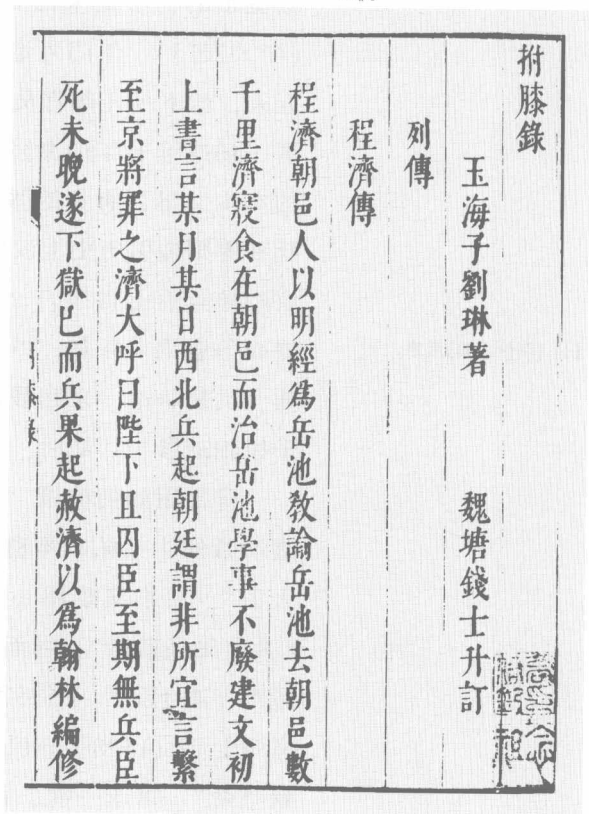 拊膝錄
玉海子劉琳著　魏塘錢士升訂
列傳
程濟傳
程濟朝邑人以明經爲岳池敎諭岳池去朝邑數
千里濟寢食在朝邑而治岳池學事不廢建文初
上書言某月某日西北兵起朝廷謂非所宜言繫
至京將罪之濟大呼曰陛下且囚臣至期無兵臣
死未晚遂下獄已而兵果起赦濟以爲翰林編修